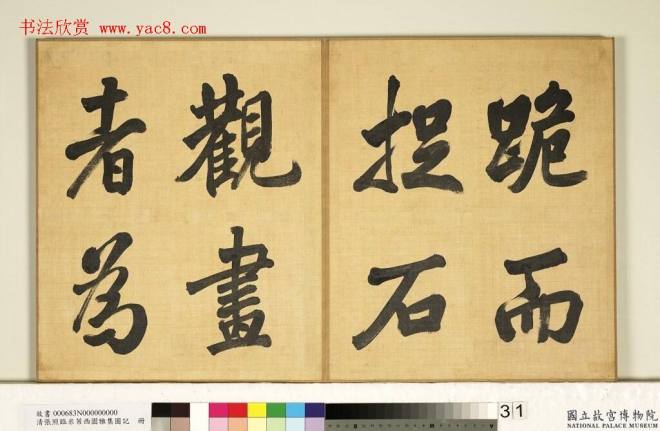 书法欣赏 www.yac8.com
跪而
捉石
觀畫
者為
故書000683N000000000
清張照臨米芾西園雅集圖記 冊
31
國立故宮博物院
NATIONAL PALACE MUSEUM